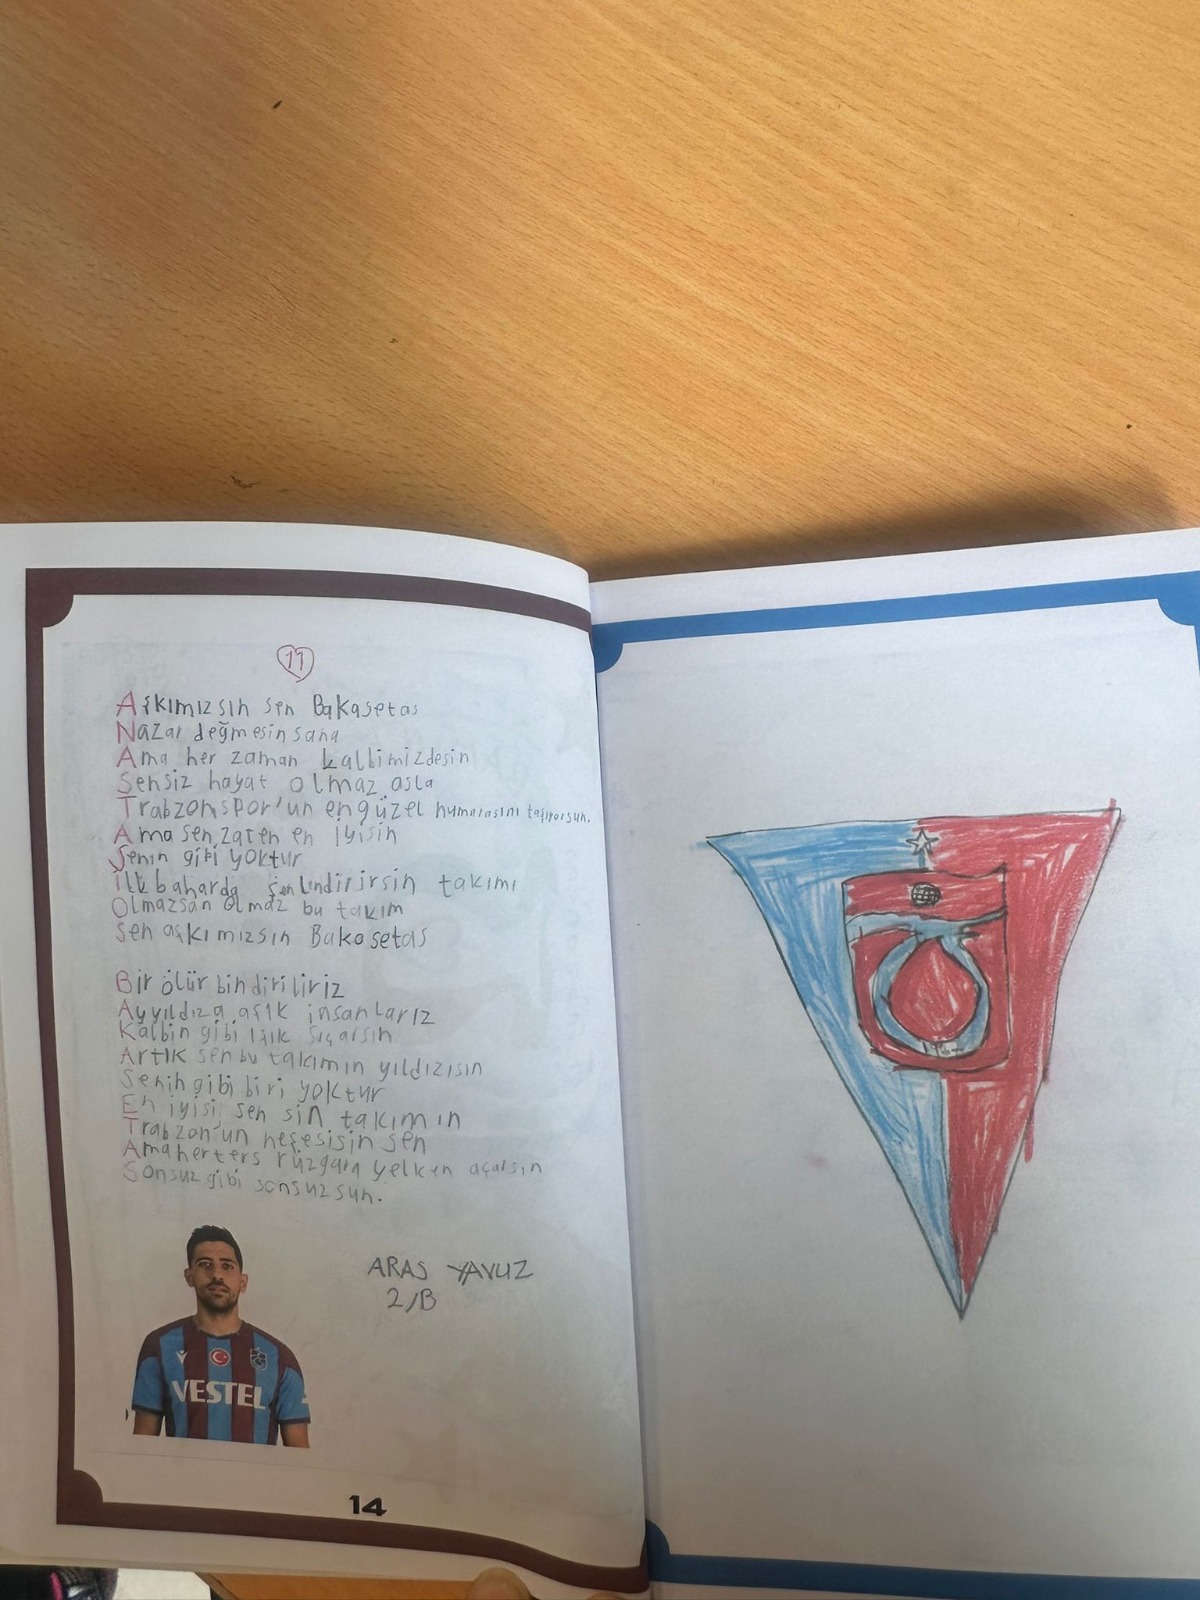 11
Aşkımızsın sen Bakasetas
Nazar değmesin sana
Ama her zaman kalbimizdesin
Sensiz hayat olmaz asla
Trabzonspor'un en güzel numarasını taşıyorsun.
Ama sen zaten en iyisin
Senin gibi yoktur
İlk baharda şenlendirirsin takımı
Olmazsan olmaz bu takım
Sen aşkımızsın Bakasetas
Bir ölür bin diriliriz
Ayyıldıza aşık insanlarız
Kalbin gibi ışık saçarsın
Artık sen bu takımın yıldızısın
Senin gibi biri yoktur
En iyisi sen sin takımın
Trabzon'un neşesisin sen
Ama her ters rüzgara yelken açarsın
Sonsuz gibi sonsuzsun.
ARAS YAVUZ
2/B
VESTEL
14